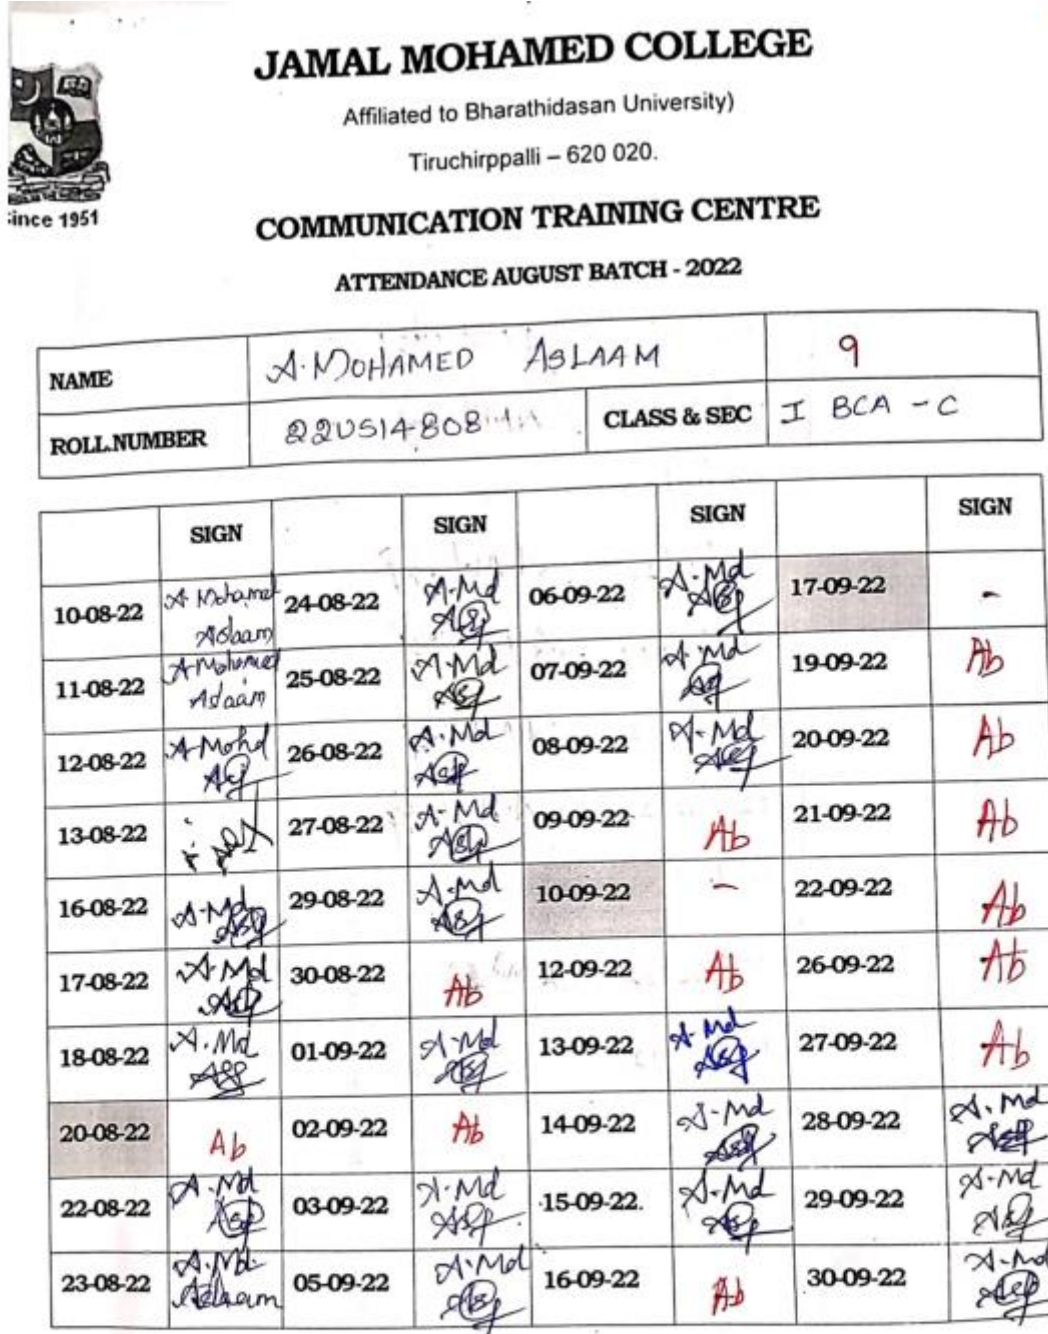 JAMAL MOHAMED COLLEGE
Affiliated to Bharathidasan University)
Tiruchirppalli – 620 020.
Since 1951
COMMUNICATION TRAINING CENTRE
ATTENDANCE AUGUST BATCH - 2022
NAME A. MOHAMED ASLAAM 9
ROLL.NUMBER 22USI4808 CLASS & SEC I BCA - C
SIGN SIGN SIGN SIGN
10-08-22 A Mohamed Aslaam 24-08-22 A.Md 06-09-22 A.Md 17-09-22 -
11-08-22 A Mohamed Aslaam 25-08-22 A.Md 07-09-22 A.Md 19-09-22 Ab
12-08-22 A Mohd 26-08-22 A.Md 08-09-22 A-Md 20-09-22 Ab
13-08-22 27-08-22 A-Md 09-09-22 Ab 21-09-22 Ab
16-08-22 A-Md 29-08-22 A.Md 10-09-22 - 22-09-22 Ab
17-08-22 A.Md 30-08-22 Ab 12-09-22 Ab 26-09-22 Ab
18-08-22 A.Md 01-09-22 A-Md 13-09-22 A-Md 27-09-22 Ab
20-08-22 Ab 02-09-22 Ab 14-09-22 A-Md 28-09-22 A.Md
22-08-22 A.Md 03-09-22 A.Md 15-09-22. A.Md 29-09-22 A-Md
23-08-22 A.Md. Aslaam 05-09-22 A.Md 16-09-22 Ab 30-09-22 A-Md